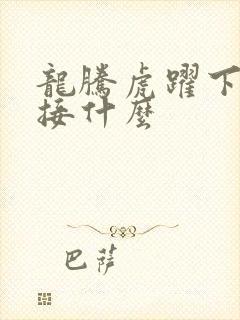 龍騰虎躍下
接什麼
巴薩